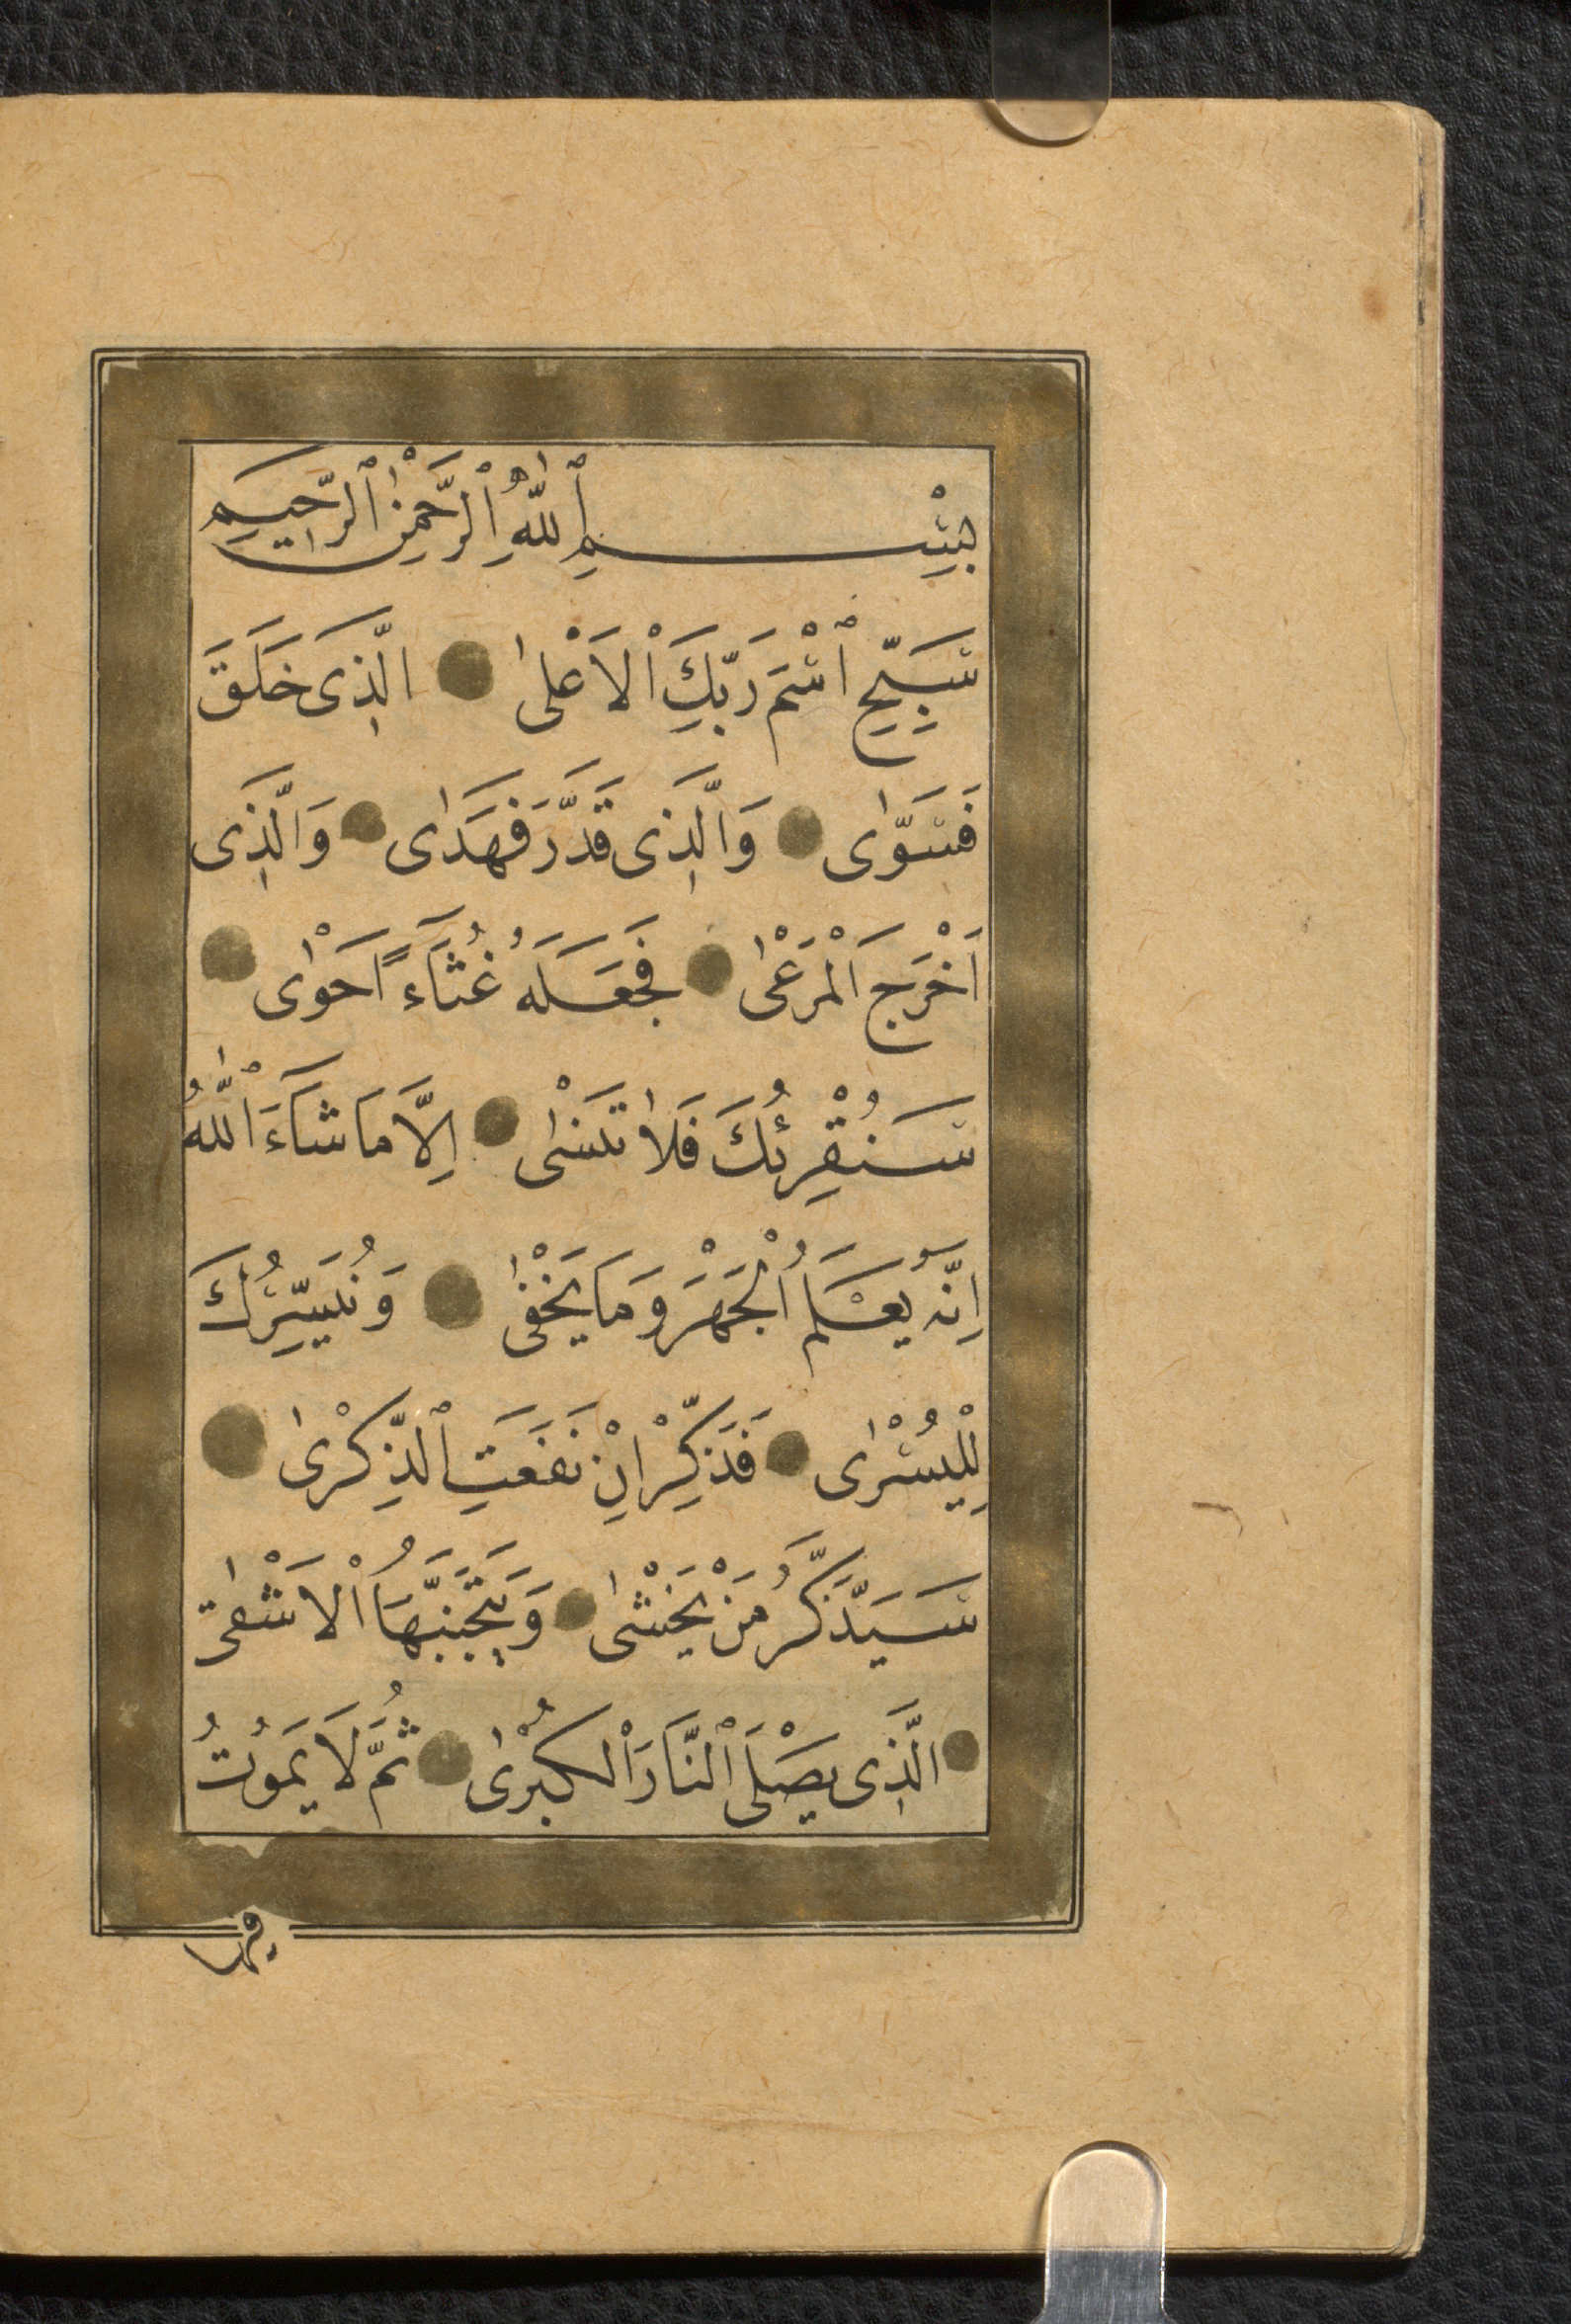 بِسْمِ ٱللّٰهِ ٱلرَّحْمٰنِ ٱلرَّحِيمِ
سَبِّحِ ٱسْمَ رَبِّكَ ٱلْاَعْلٰى الَّذِى خَلَقَ
فَسَوّٰى وَالَّذِى قَدَّرَ فَهَدٰى وَالَّذِى
اَخْرَجَ الْمَرْعٰى فَجَعَلَهُ غُثَآءً اَحْوٰى
سَنُقْرِئُكَ فَلَا تَنْسٰى اِلَّا مَا شَآءَ اللّٰهُ
اِنَّهُ يَعْلَمُ الْجَهْرَ وَمَا يَخْفٰى وَنُيَسِّرُكَ
لِلْيُسْرٰى فَذَكِّرْ اِنْ نَفَعَتِ ٱلذِّكْرٰى
سَيَذَّكَّرُ مَنْ يَخْشٰى وَيَتَجَنَّبُهَا الْاَشْقٰى
الَّذِى يَصْلَى ٱلنَّارَ الْكُبْرٰى ثُمَّ لَا يَمُوتُ
فيها